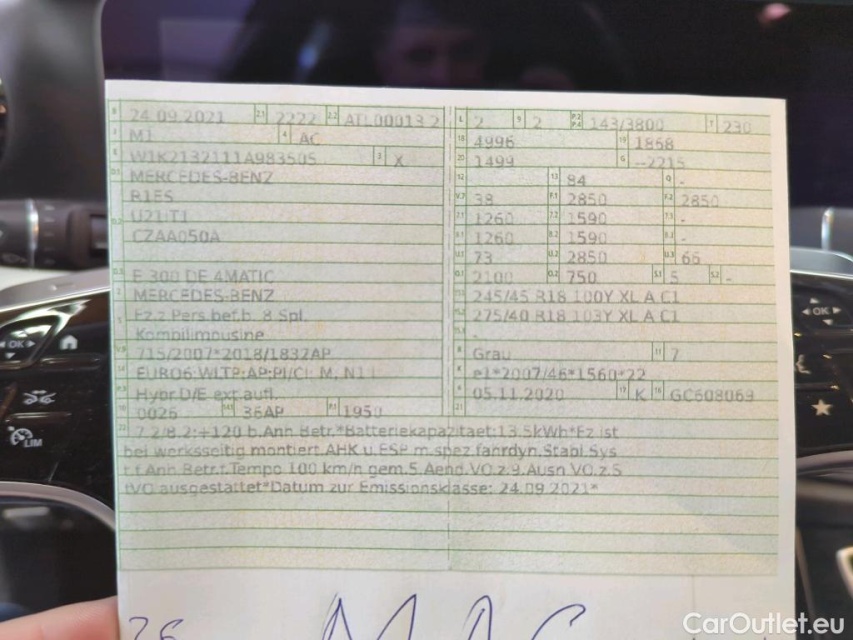 B 24.09.2021 2.1 2222 2.2 ATL00013 2 L 2 9 2 P.2 P.4 143/3800 T 230
J M1 4 AC 18 4996 19 1858
E W1K2132111A983505 3 X 20 1499 G --2215
D.1 MERCEDES-BENZ 12 - 13 84 Q -
R1ES V.7 38 F.1 2850 F.2 2850
D.2 U21T1 7.1 1260 7.2 1590 7.3 -
CZAA050A 8.1 1260 8.2 1590 8.3 -
U.1 73 U.2 2850 U.3 66
D.3 E 300 DE 4MATIC O.1 2100 O.2 750 S.1 5 S.2 -
MERCEDES-BENZ 15.1 245/45 R18 100Y XL A C1
5 Fz.z Pers bef.b. 8 Spl. 15.2 275/40 R18 103Y XL A C1
Kombilimousine 15.3 -
V.9 715/2007*2018/1832AP R Grau 11 7
14 EURO6 WLTP;AP;PI/CI; M, N1 I K e1*2007/46*1560*22
P.3 Hybr.D/E ext.aufl. 6 05.11.2020 17 K 16 GC608069
10 0026 14.1 36AP P.1 1950 21
22 7.2/8.2:+120 b.Anh.Betr.*Batteriekapazitaet:13.5kWh*Fz ist
bei werksseitig montiert.AHK u.ESP m.spez.fahrdyn.Stabl.Sys
t.f.Anh.Betr.f.Tempo 100 km/h gem.5.Aend.VO.z.9.Ausn.VO.z.S
tVO ausgestattet*Datum zur Emissionsklasse: 24.09.2021*
OK
OK
LIM
CarOutlet.eu